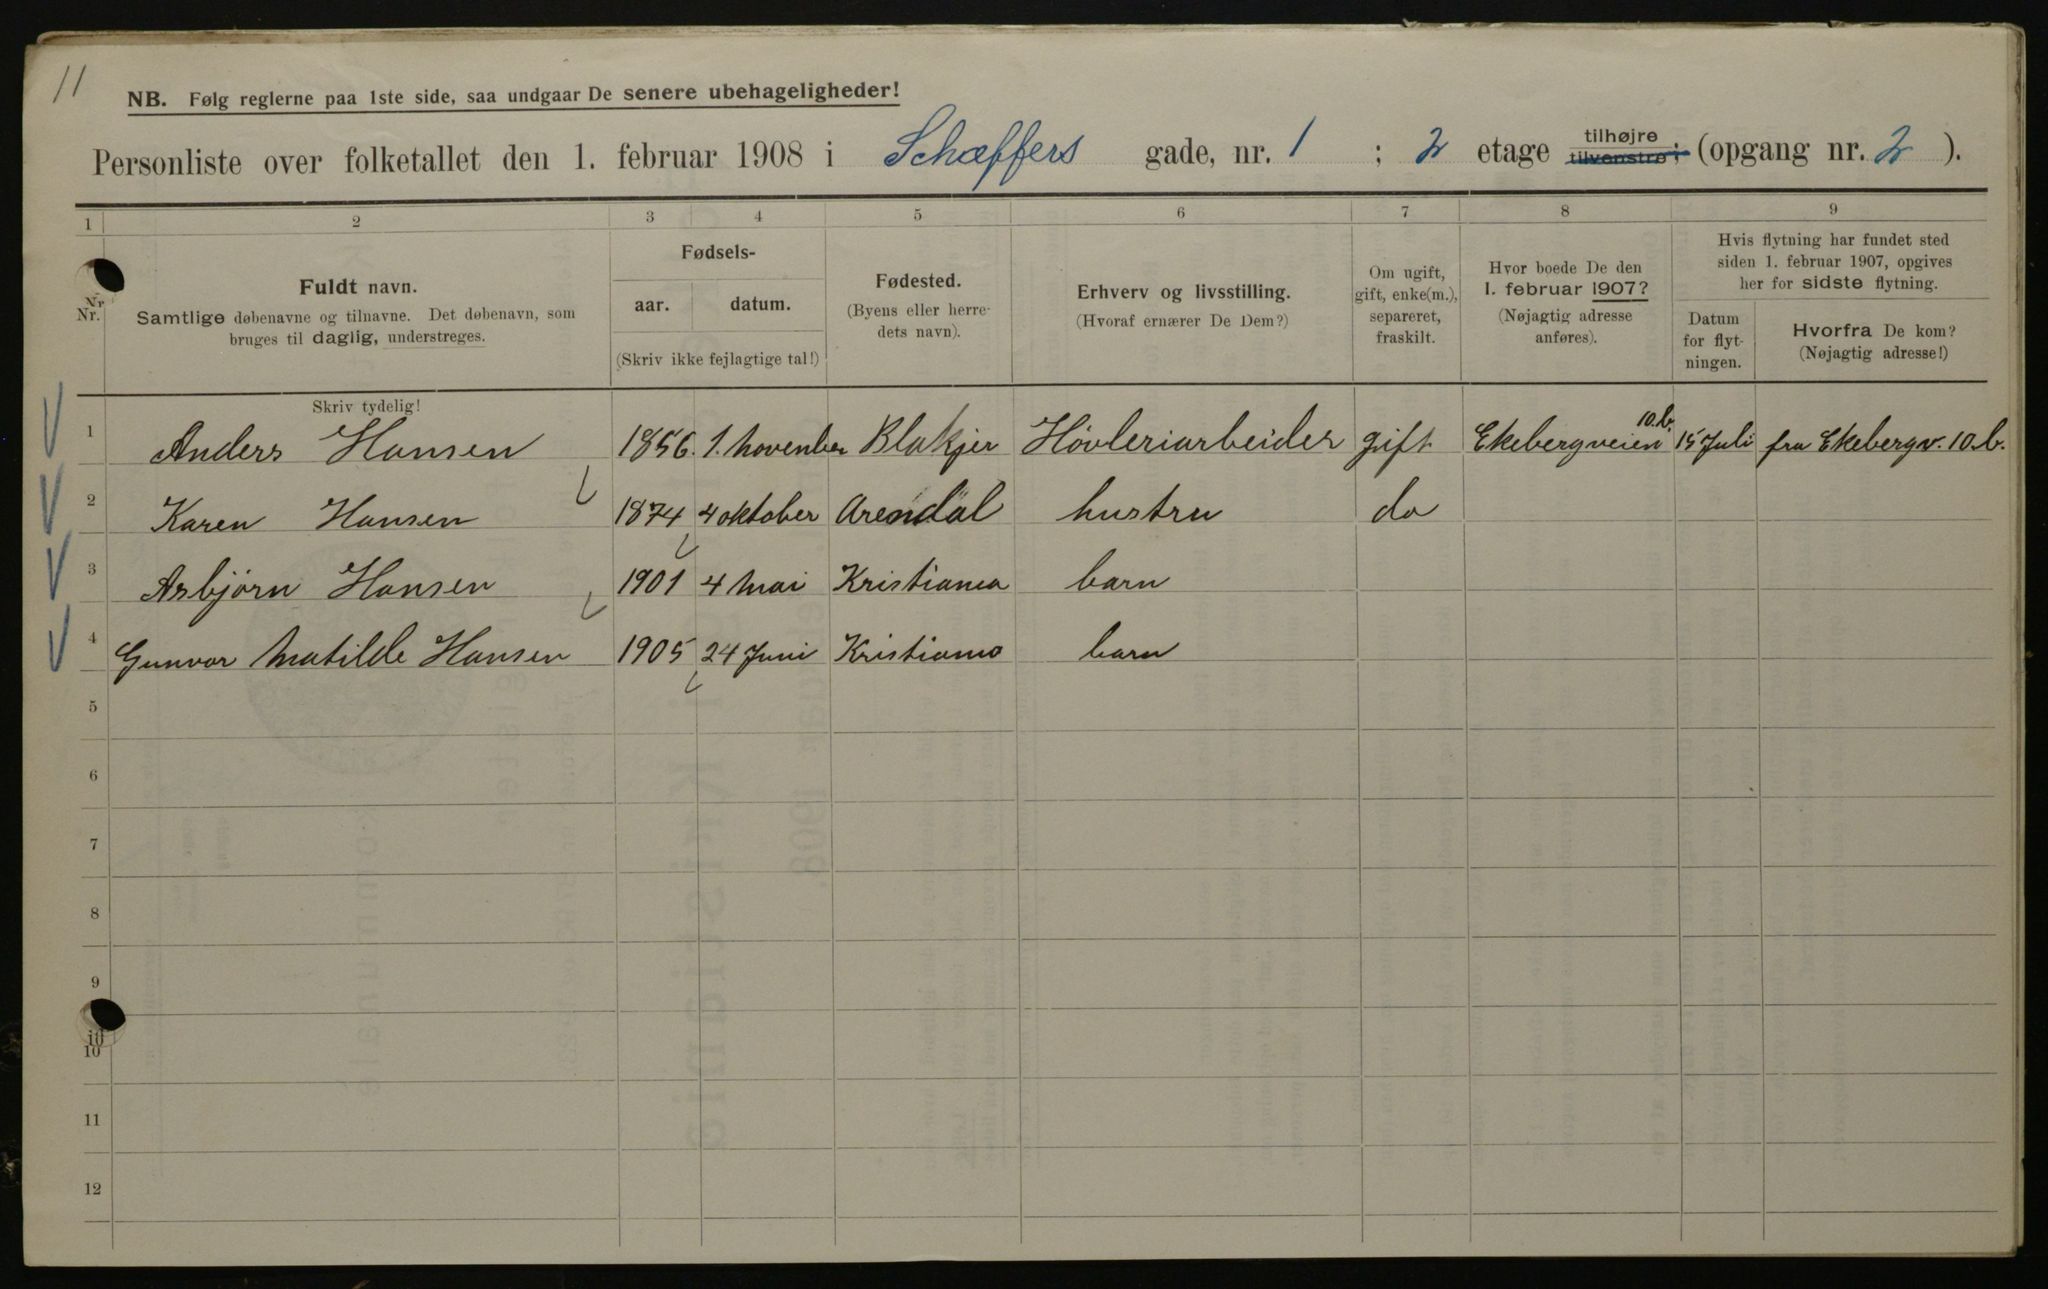 11
NB. Følg reglerne paa 1ste side, saa undgaar De senere ubehageligheder!
Personliste over folketallet den 1. februar 1908 i Schæffers gade, nr. 1 ; 2 etage tilhøjre tilvenstre; (opgang nr. 2 ).
1 2 3 4 5 6 7 8 9
Nr. Nr.
Fuldt navn.
Samtlige døbenavne og tilnavne. Det døbenavn, som
bruges til daglig, understreges.
Fødsels-
aar. datum.
(Skriv ikke fejlagtige tal!)
Fødested.
(Byens eller herre-
dets navn).
Erhverv og livsstilling.
(Hvoraf ernærer De Dem?)
Om ugift,
gift, enke(m.),
separeret,
fraskilt.
Hvor boede De den
1. februar 1907?
(Nøjagtig adresse
anføres).
Hvis flytning har fundet sted
siden 1. februar 1907, opgives
her for sidste flytning.
Datum
for flyt-
ningen.
Hvorfra De kom?
(Nøjagtig adresse!)
Skriv tydelig!
1 Anders Hansen 1856. 1. november Blakjer Høvleriarbeider gift Ekebergveien 10.b. 15 Juli fra Ekebergv. 10.b.
2 Karen Hansen 1874 4 oktober Arendal hustru do
3 Asbjørn Hansen 1901 4 mai Kristiania barn
4 Gunvor Matilde Hansen 1905 24 Juni Kristiania barn
5
6
7
8
9
10
10
11
12